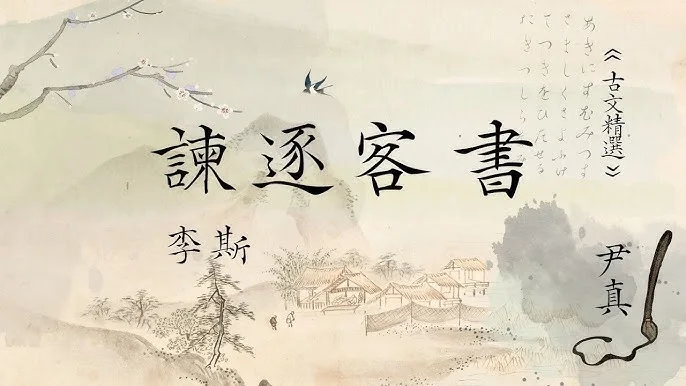 諫逐客書
李斯
《古文精選》
尹真
あきにすむみつす
さましくさよふけ
てつきをひたせる